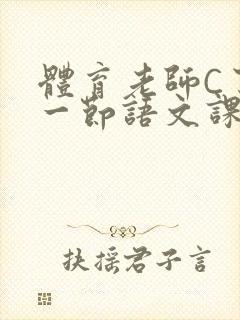 體育老師C
一節語文課
扶搖君子言